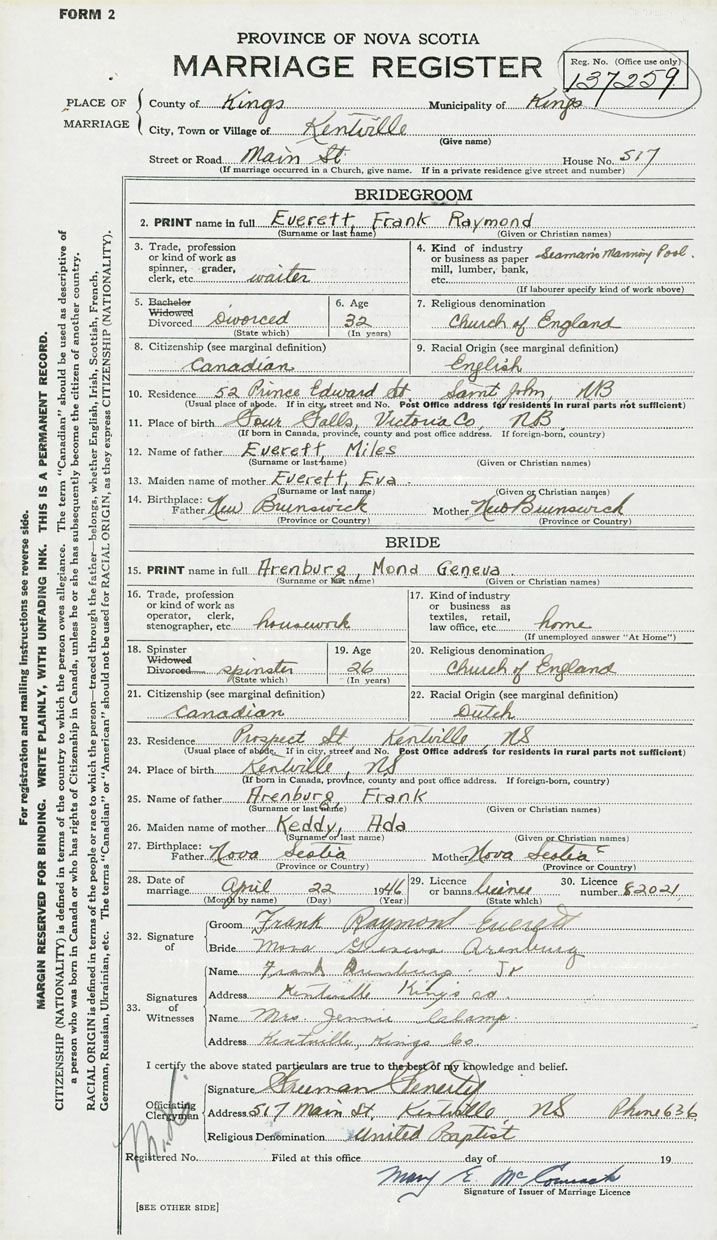 FORM 2
PROVINCE OF NOVA SCOTIA
MARRIAGE REGISTER
Reg. No. (Office use only)
137259
PLACE OF MARRIAGE
County of Kings Municipality of Kings
City, Town or Village of Kentville
(Give name)
Street or Road Main St. House No. 517
(If marriage occurred in a Church, give name. If in a private residence give street and number)
BRIDEGROOM
2. PRINT name in full Everett, Frank Raymond
(Surname or last name) (Given or Christian names)
3. Trade, profession or kind of work as spinner, grader, clerk, etc. waiter
4. Kind of industry or business as paper mill, lumber, bank, etc. Seaman's Manning Pool.
(If labourer specify kind of work above)
5. Bachelor Widowed Divorced Divorced
(State which)
6. Age 32
(In years)
7. Religious denomination
Church of England
8. Citizenship (see marginal definition)
Canadian
9. Racial Origin (see marginal definition)
English
10. Residence 52 Prince Edward St. Saint John, NB
(Usual place of abode. If in city, street and No. Post Office address for residents in rural parts not sufficient)
11. Place of birth Four Falls, Victoria Co, NB
(If born in Canada, province, county and post office address. If foreign-born, country)
12. Name of father Everett, Miles
(Surname or last name) (Given or Christian names)
13. Maiden name of mother Everett, Eva
(Surname or last name) (Given or Christian names)
14. Birthplace: Father New Brunswick Mother New Brunswick
(Province or Country) (Province or Country)
BRIDE
15. PRINT name in full Arenburg, Mona Geneva
(Surname or last name) (Given or Christian names)
16. Trade, profession or kind of work as operator, clerk, stenographer, etc. housework
17. Kind of industry or business as textiles, retail, law office, etc. home
(If unemployed answer "At Home")
18. Spinster Widowed Divorced spinster
(State which)
19. Age 26
(In years)
20. Religious denomination
Church of England
21. Citizenship (see marginal definition)
Canadian
22. Racial Origin (see marginal definition)
Dutch
23. Residence Prospect St Kentville, NS
(Usual place of abode. If in city, street and No. Post Office address for residents in rural parts not sufficient)
24. Place of birth Kentville, NS
(If born in Canada, province, county and post office address. If foreign-born, country)
25. Name of father Arenburg, Frank
(Surname or last name) (Given or Christian names)
26. Maiden name of mother Keddy, Ada
(Surname or last name) (Given or Christian names)
27. Birthplace: Father Nova Scotia Mother Nova Scotia
(Province or Country) (Province or Country)
28. Date of marriage April 22 1946
(Month by name) (Day) (Year)
29. Licence or banns licence
(State which)
30. Licence number 82021
32. Signature of
Groom Frank Raymond Everett
Bride Mona Geneva Arenburg
33. Signatures of Witnesses
Name Frank Arenburg Jr
Address Kentville King's co.
Name Mrs. Jennie
Address Kentville, Kings Co.
I certify the above stated particulars are true to the best of my knowledge and belief.
Officiating Clergyman
Signature Freeman Fenerty
Address 517 Main St. Kentville, NS Phone 636
Religious Denomination United Baptist
Registered No. Filed at this office day of 19
Mary E. McCormack
Signature of Issuer of Marriage Licence
[SEE OTHER SIDE]
For registration and mailing instructions see reverse side.
MARGIN RESERVED FOR BINDING. WRITE PLAINLY, WITH UNFADING INK. THIS IS A PERMANENT RECORD.
CITIZENSHIP (NATIONALITY) is defined in terms of the country to which the person owes allegiance. The term "Canadian" should be used as descriptive of
a person who was born in Canada or who has rights of Citizenship in Canada, unless he or she has subsequently become the citizen of another country.
RACIAL ORIGIN is defined in terms of the people or race to which the person—traced through the father—belongs, whether English, Irish, Scottish, French,
German, Russian, Ukrainian, etc. The terms "Canadian" or "American" should not be used for RACIAL ORIGIN, as they express CITIZENSHIP (NATIONALITY).